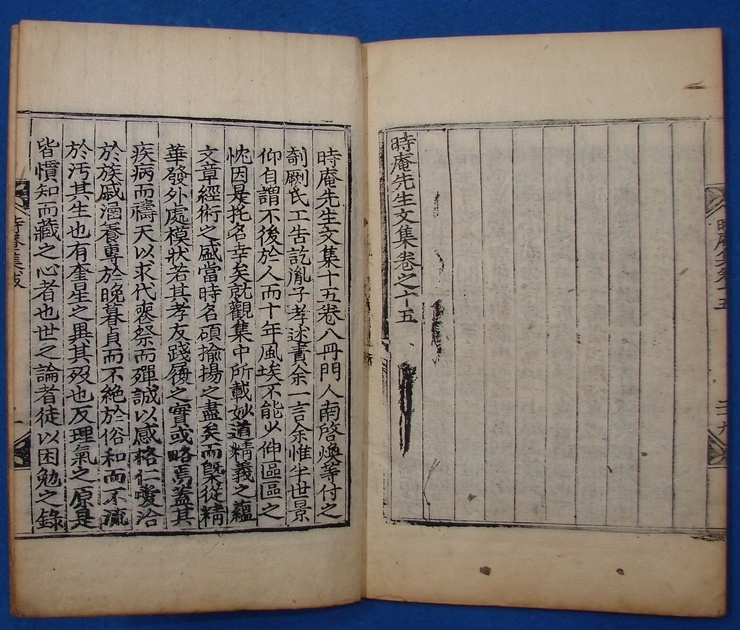 時庵先生文集卷之十五
時庵先生文集十五卷八冊門人南啓煥等付之
剞劂氏工告訖胤子考述書余一言余惟半世景
仰自謂不後於人而十年風埃不能少伸區區之
忱因是托名幸矣就觀集中所載妙道精義之蘊
文章經術之盛當時名碩揄揚之盡矣而槩從精
華發外處模狀若其孝友踐履之實或略焉蓋其
疾病而禱天以求代喪祭而殫誠以感格仁愛洽
於族戚涵養專於晚暮貞而不絶於俗和而不流
於汚其生也有奎星之異其歿也反理氣之原是
皆慣知而藏之心者也世之論者徒以困勉之錄
時庵集跋